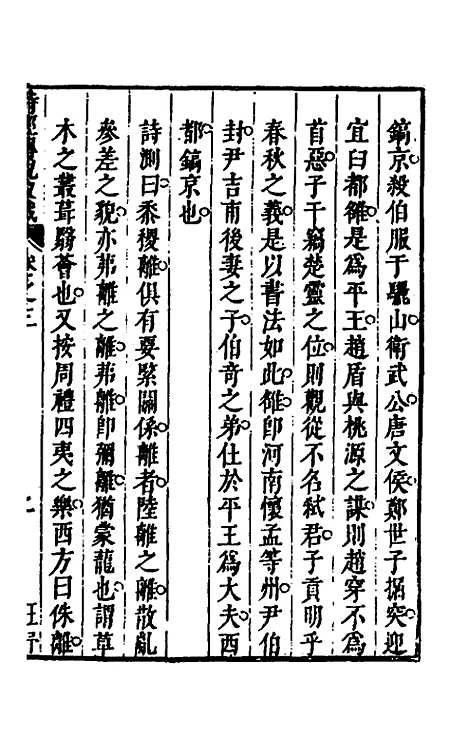 鎬京殺伯服于驪山衛武公唐文侯鄭世子掘突迎
宜臼都雒是爲平王趙盾與桃源之謀則趙穿不爲
首惡子干竊楚靈之位則觀從不名弒君子貢明乎
春秋之義是以書法如此雒卽河南懷孟等州尹伯
封尹吉甫後妻之子伯奇之弟仕於平王爲大夫西
都鎬京也
詩測曰黍稷離俱有要緊關係離者陸離之離散亂
參差之貌亦茀離之離茀離卽彌離猶蒙蘢也謂草
木之叢茸翳薈也又按周禮四夷之樂西方曰侏離
卷之三